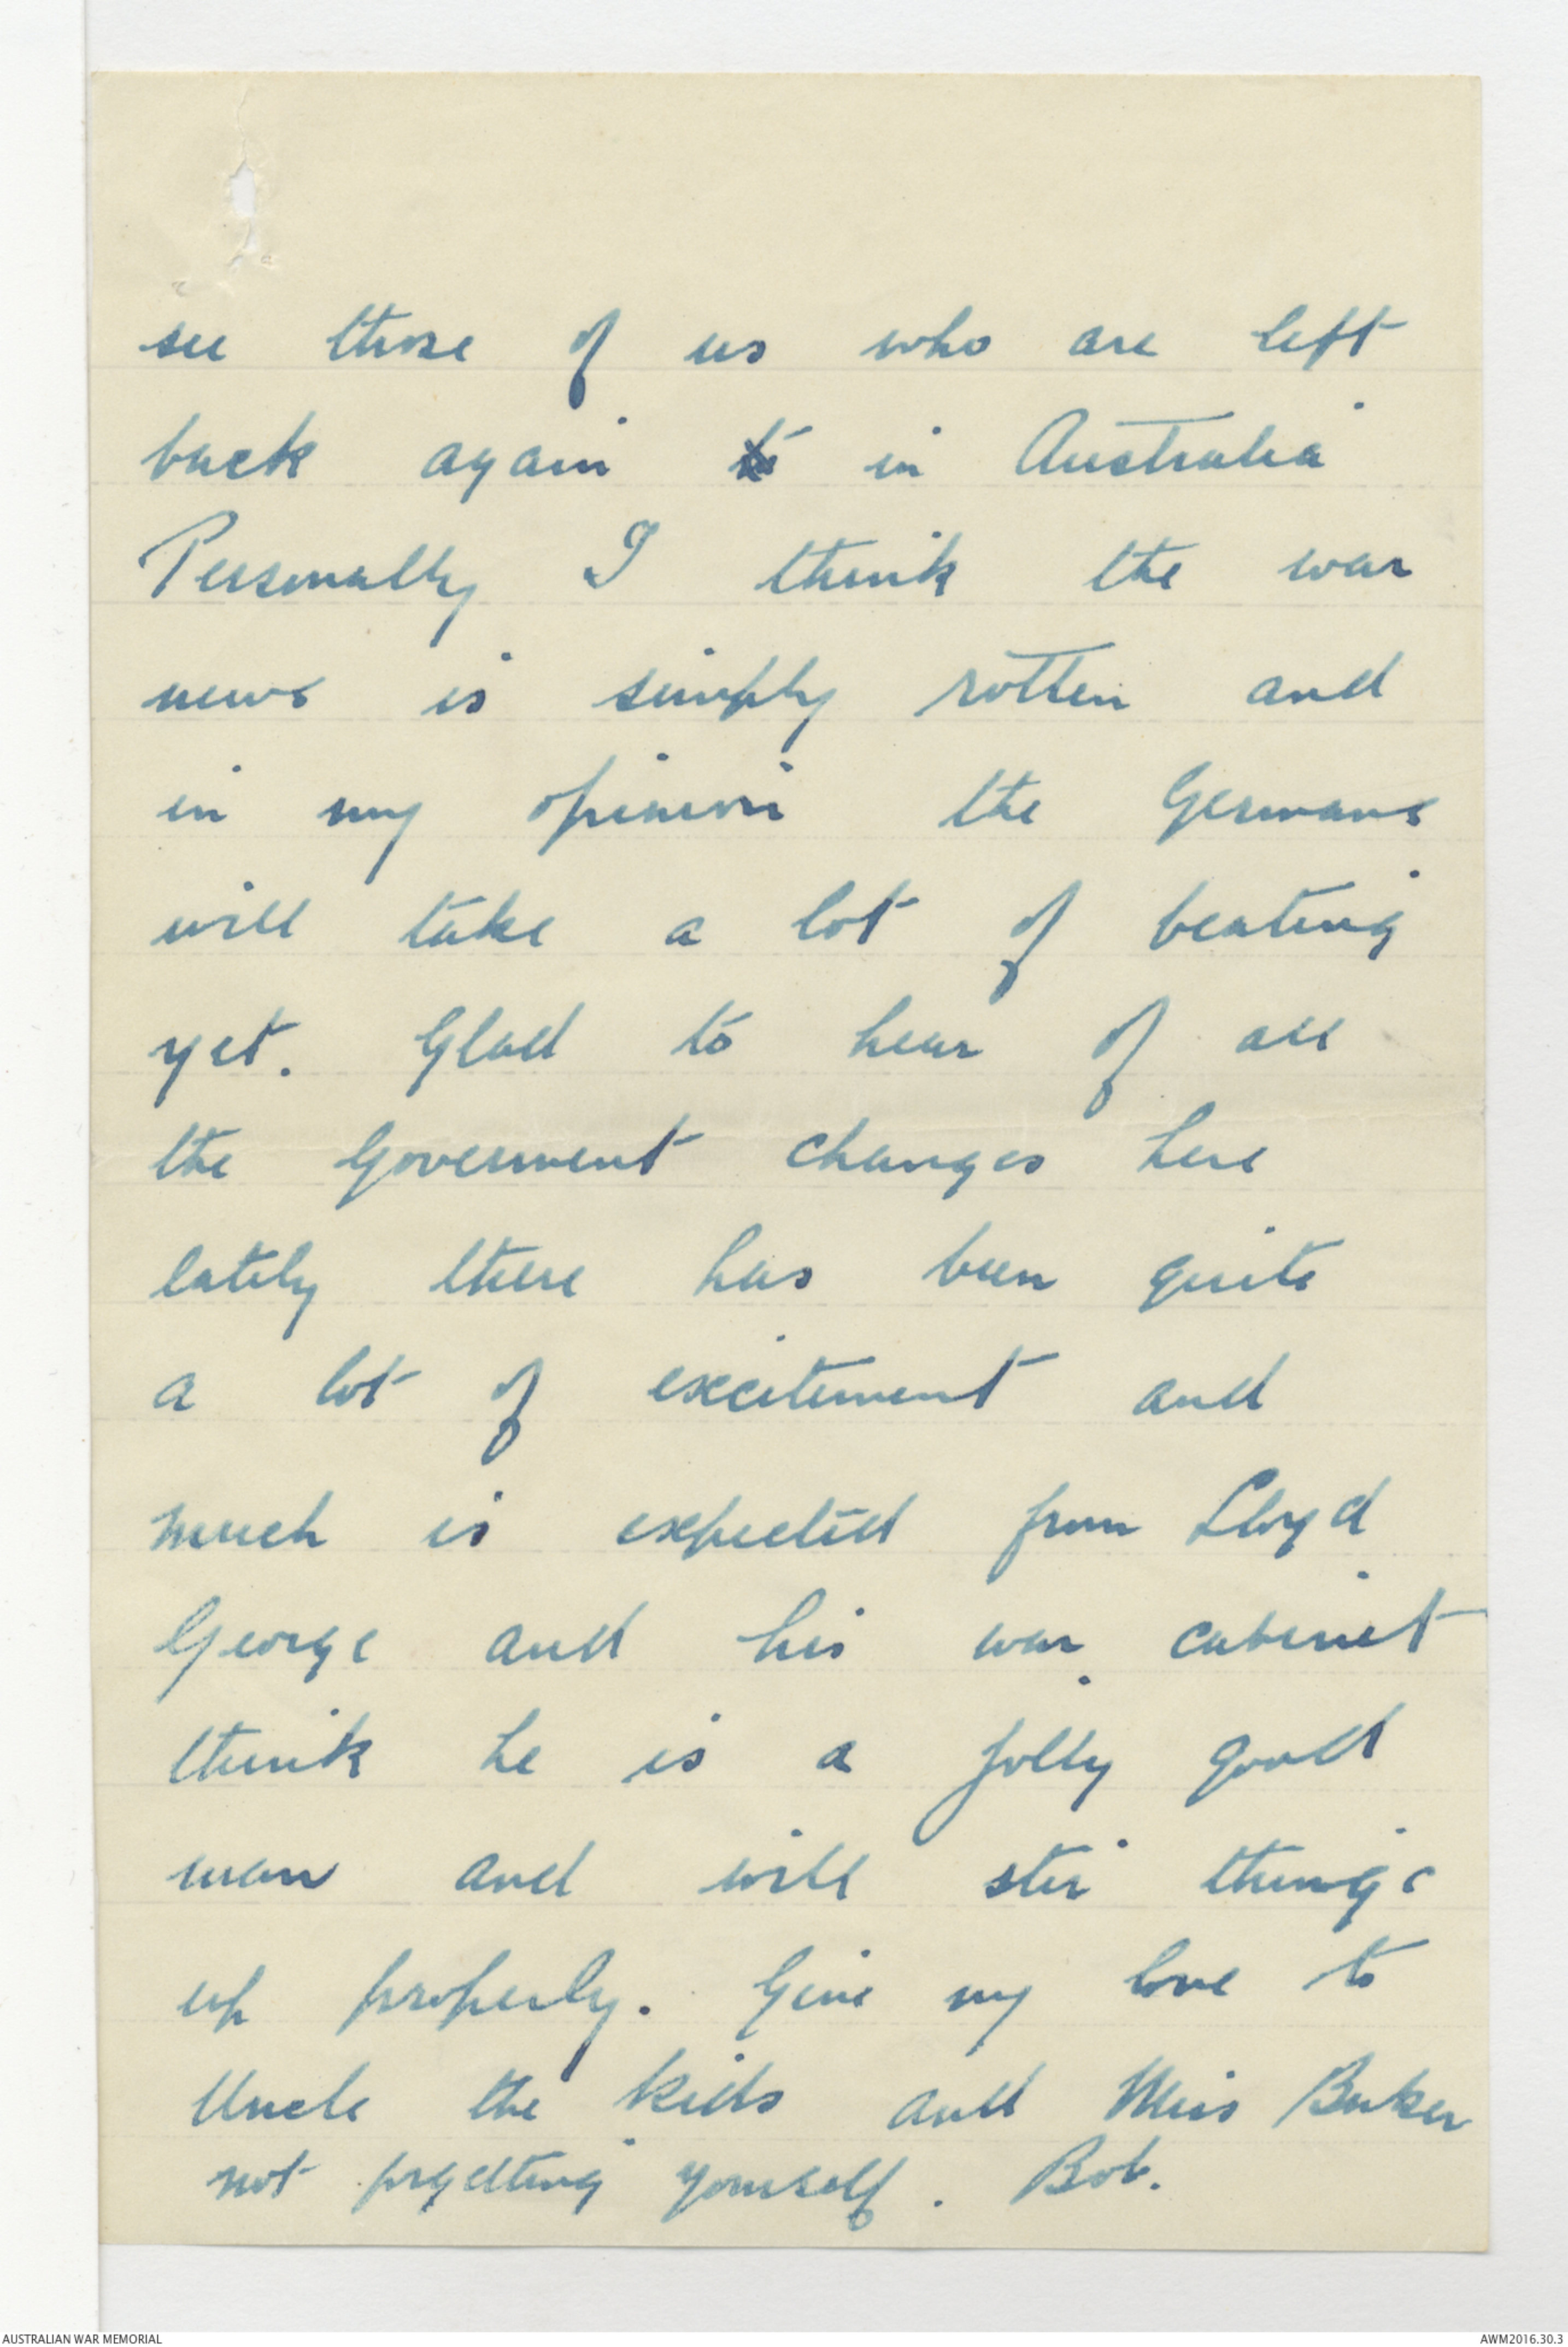 see those of us who are left
back again to in Australia
Personally I think the war
news is simply rotten and
in my opinion the Germans
will take a lot of beating
yet. Glad to hear of all
the Goverment changes here
lately there has been quite
a lot of excitement and
much is expected from Lloyd
George and his war cabinet
think he is a jolly good
man and will stir things
up properly. Give my love to
Uncle the kids and Miss Baker
not forgetting yourself. Bob.
AUSTRALIAN WAR MEMORIAL
AWM2016.30.3